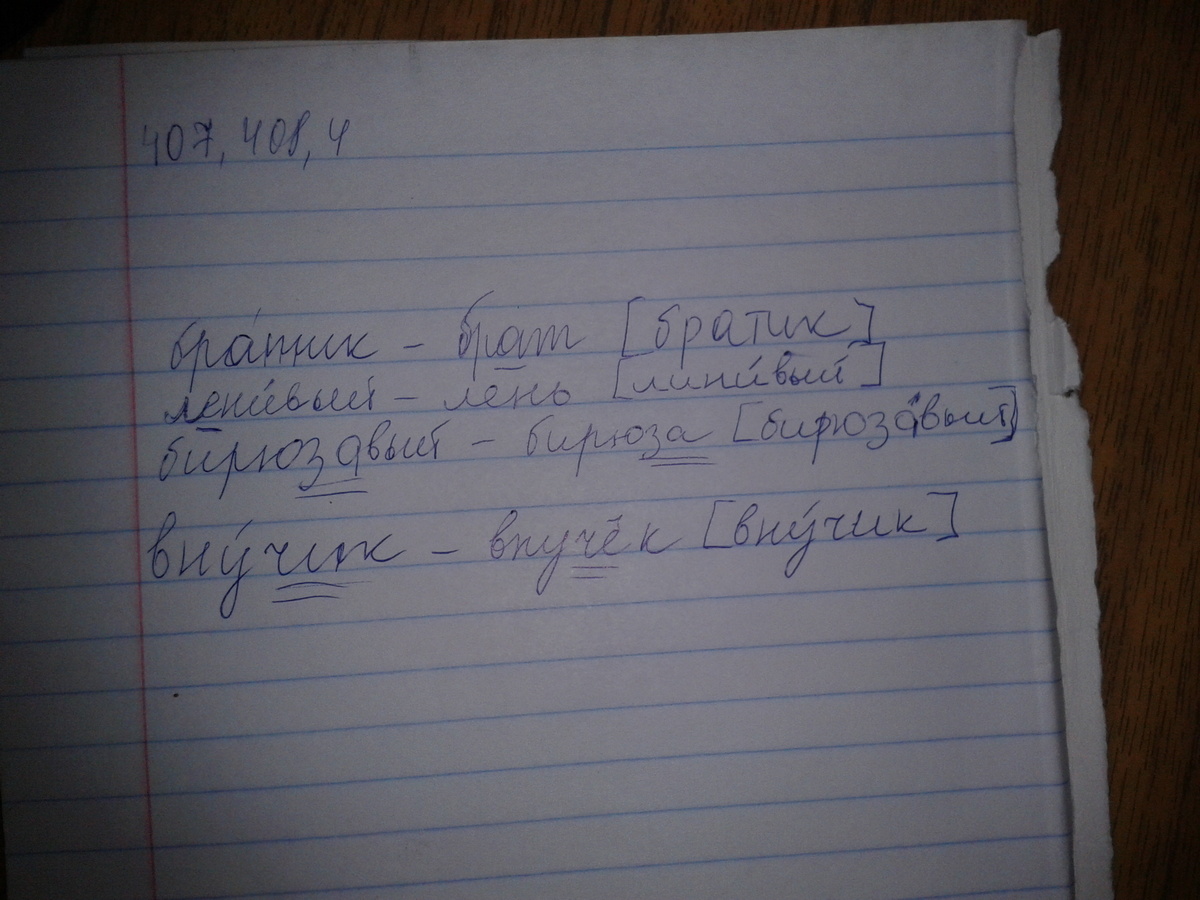 407, 408, 4
бра́тик – брат [братик]
лени́вый – лень [лини́вый]
бирюзавый – бирюза [бирюза́вый]
вну́чик – внучек [вну́чик]